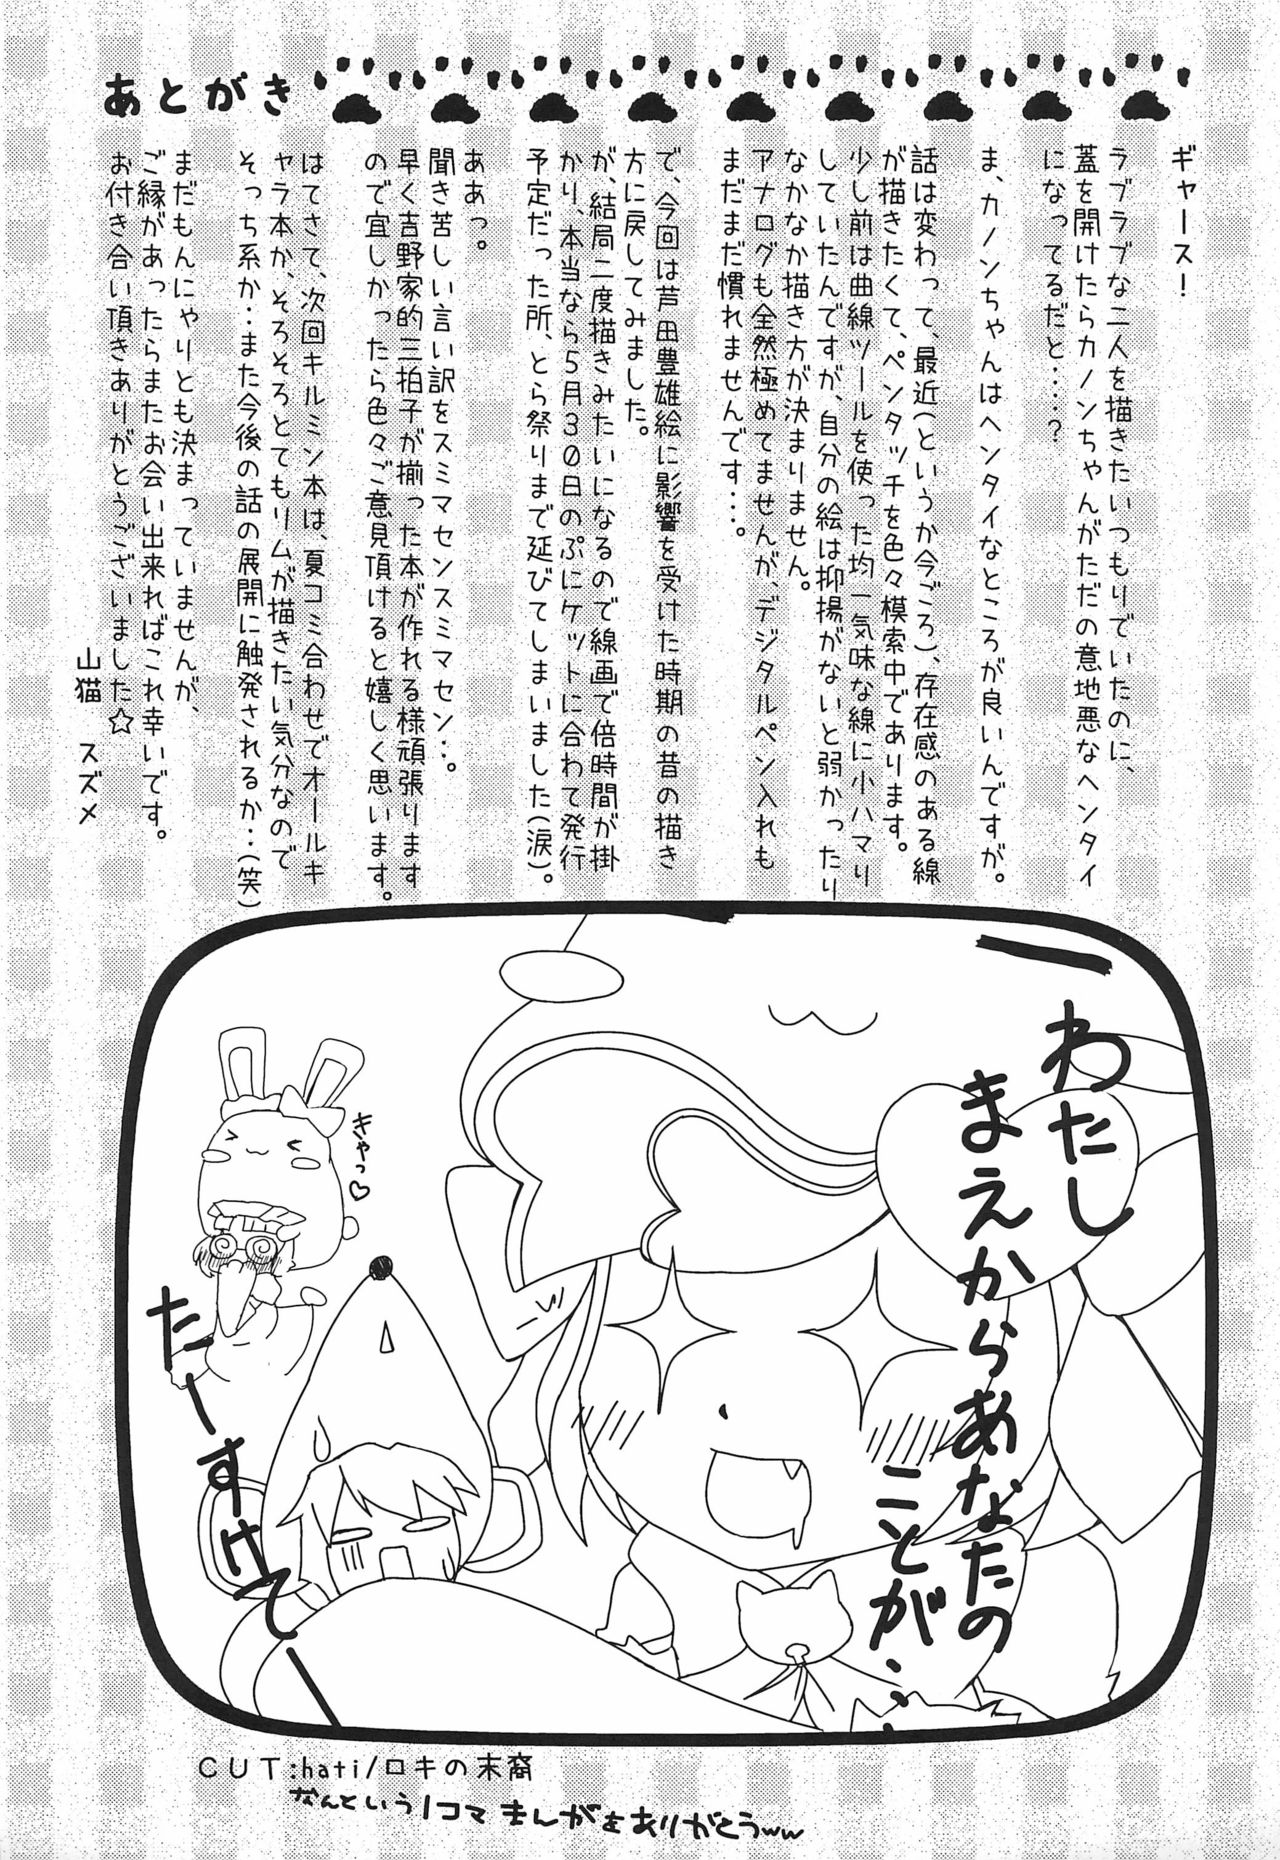 あとがき
ギャース！
ラブラブな二人を描きたいつもりでいたのに、
蓋を開けたらカノンちゃんがただの意地悪なヘンタイ
になってるだと‥‥？
ま、カノンちゃんはヘンタイなところが良いんですが。
話は変わって、最近(というか今ごろ)、存在感のある線
が描きたくて、ペンタッチを色々模索中であります。
少し前は曲線ツールを使った均一気味な線に小ハマり
していたんですが、自分の絵は抑揚がないと弱かったり
なかなか描き方が決まりません。
アナログも全然極めてませんが、デジタルペン入れも
まだまだ慣れませんです‥‥。
で、今回は芦田豊雄絵に影響を受けた時期の昔の描き
方に戻してみました。
が、結局二度描きみたいになるので線画で倍時間が掛
かり、本当なら５月３０日のぷにケットに合わせて発行
予定だった所、とら祭りまで延びてしまいました(涙)。
ああっ。
聞き苦しい言い訳をスミマセンスミマセン‥。
早く吉野家的三拍子が揃った本が作れる様頑張ります
ので宜しかったら色々ご意見頂けると嬉しく思います。
はてさて、次回キルミン本は、夏コミ合わせでオールキ
ャラ本か、そろそろとてもリムが描きたい気分なので
そっち系か‥また今後の話の展開に触発されるか‥(笑)
まだもんにゃりとも決まっていませんが、
ご縁があったらまたお会い出来ればこれ幸いです。
お付き合い頂きありがとうございました☆
山猫 スズメ
わたし
まえからあなたの
ことが‥‥
きゃっ♡
たーすけてー
CUT:hati/ロキの末裔
なんという１コマまんがをありがとうww